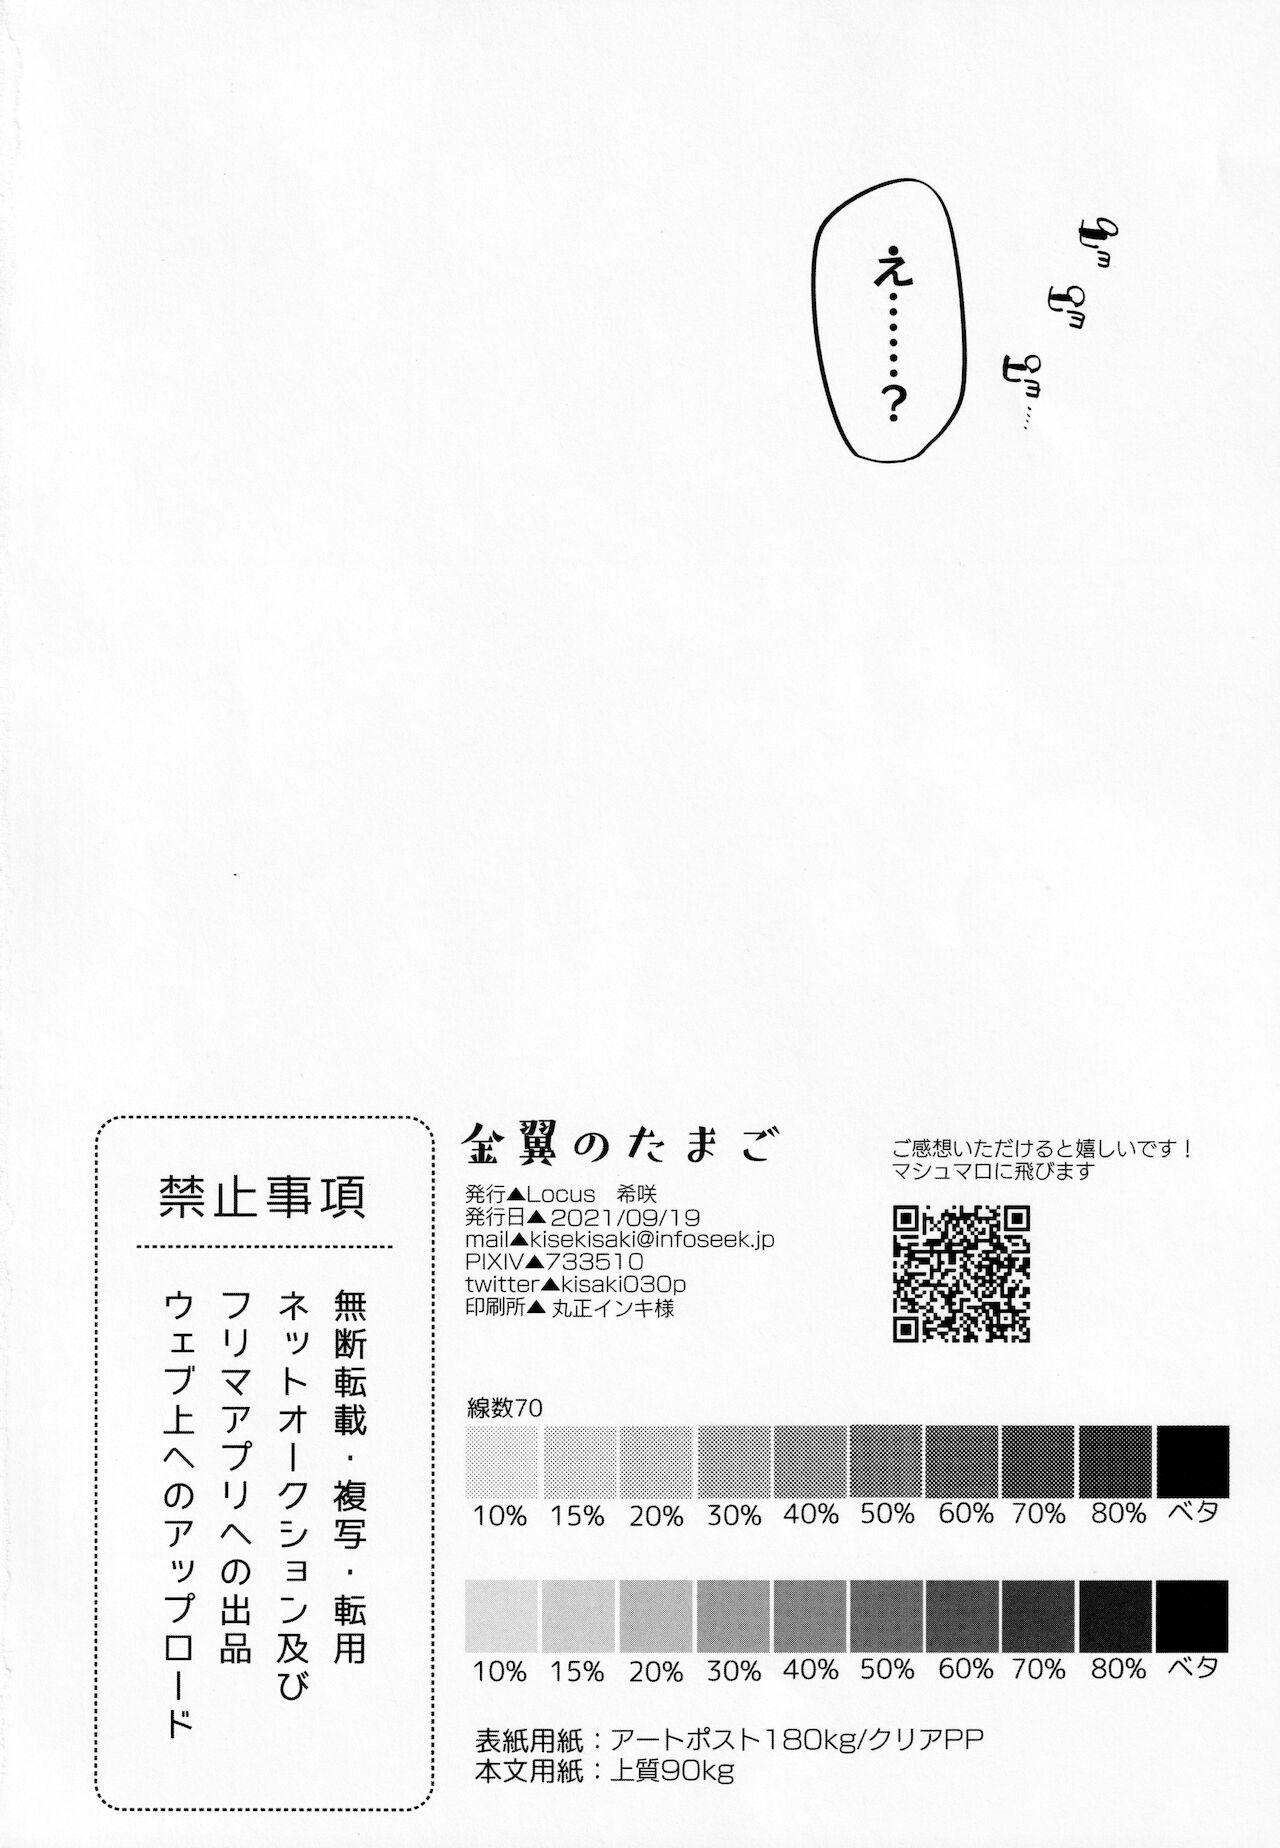 ピョ
ピョ
ピョ……
え……？
金翼のたまご
発行▲Locus　希咲
発行日▲2021/09/19
mail▲kisekisaki@infoseek.jp
PIXIV▲733510
twitter▲kisaki030p
印刷所▲丸正インキ様
ご感想いただけると嬉しいです！
マシュマロに飛びます
禁止事項
無断転載・複写・転用
ネットオークション及び
フリマアプリへの出品
ウェブ上へのアップロード
線数70
10% 15% 20% 30% 40% 50% 60% 70% 80% ベタ
10% 15% 20% 30% 40% 50% 60% 70% 80% ベタ
表紙用紙：アートポスト180kg/クリアPP
本文用紙：上質90kg